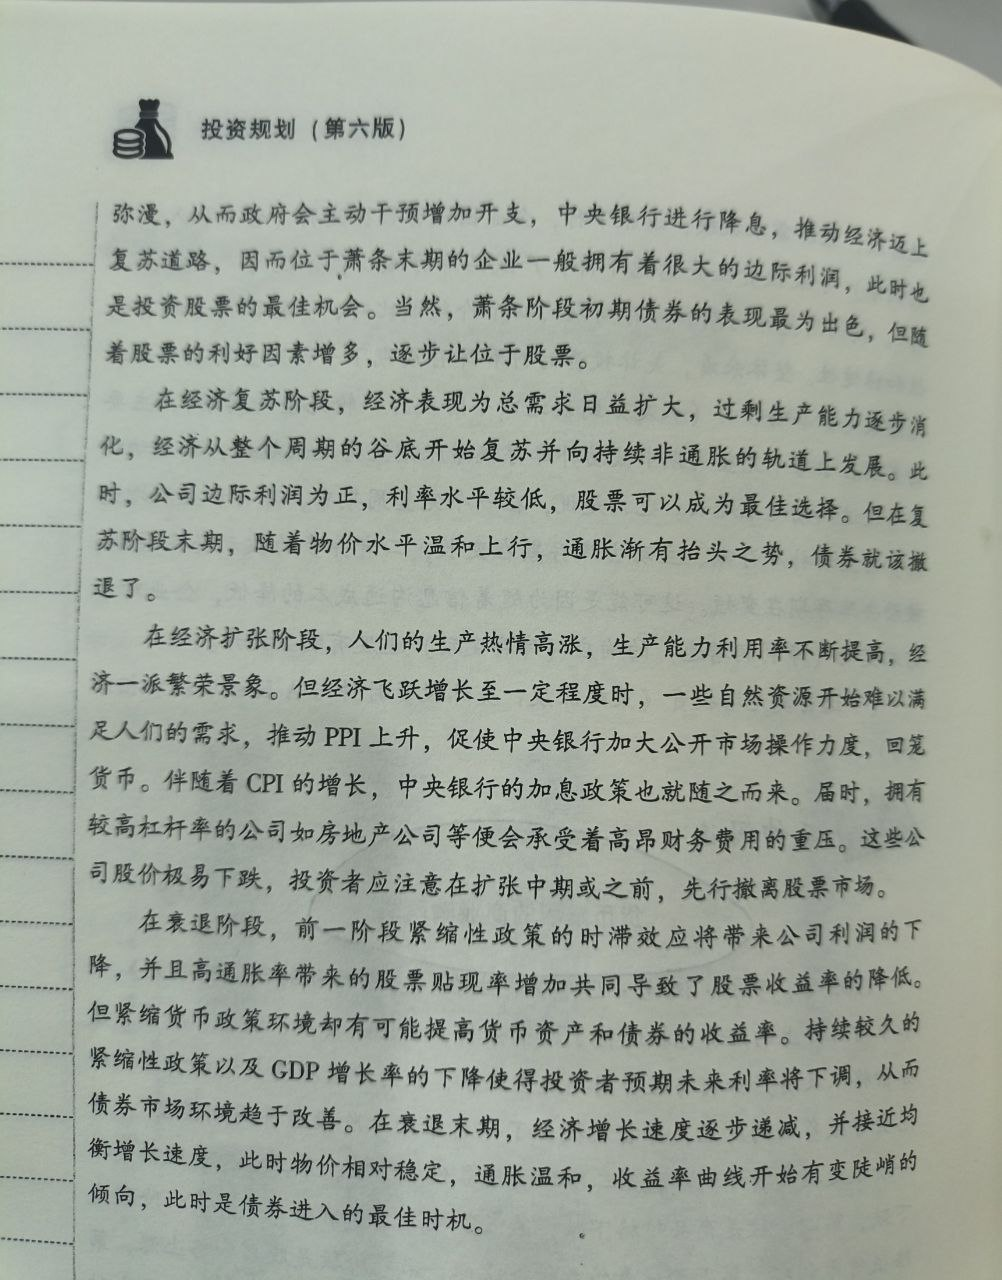 投资规划（第六版）
弥漫，从而政府会主动干预增加开支，中央银行进行降息，推动经济迈上
复苏道路，因而位于萧条末期的企业一般拥有着很大的边际利润，此时也
是投资股票的最佳机会。当然，萧条阶段初期债券的表现最为出色，但随
着股票的利好因素增多，逐步让位于股票。
在经济复苏阶段，经济表现为总需求日益扩大，过剩生产能力逐步消
化，经济从整个周期的谷底开始复苏并向持续非通胀的轨道上发展。此
时，公司边际利润为正，利率水平较低，股票可以成为最佳选择。但在复
苏阶段末期，随着物价水平温和上行，通胀渐有抬头之势，债券就该撤
退了。
在经济扩张阶段，人们的生产热情高涨，生产能力利用率不断提高，经
济一派繁荣景象。但经济飞跃增长至一定程度时，一些自然资源开始难以满
足人们的需求，推动 PPI 上升，促使中央银行加大公开市场操作力度，回笼
货币。伴随着 CPI 的增长，中央银行的加息政策也就随之而来。届时，拥有
较高杠杆率的公司如房地产公司等便会承受着高昂财务费用的重压。这些公
司股价极易下跌，投资者应注意在扩张中期或之前，先行撤离股票市场。
在衰退阶段，前一阶段紧缩性政策的时滞效应将带来公司利润的下
降，并且高通胀率带来的股票贴现率增加共同导致了股票收益率的降低。
但紧缩货币政策环境却有可能提高货币资产和债券的收益率。持续较久的
紧缩性政策以及 GDP 增长率的下降使得投资者预期未来利率将下调，从而
债券市场环境趋于改善。在衰退末期，经济增长速度逐步递减，并接近均
衡增长速度，此时物价相对稳定，通胀温和，收益率曲线开始有变陡峭的
倾向，此时是债券进入的最佳时机。